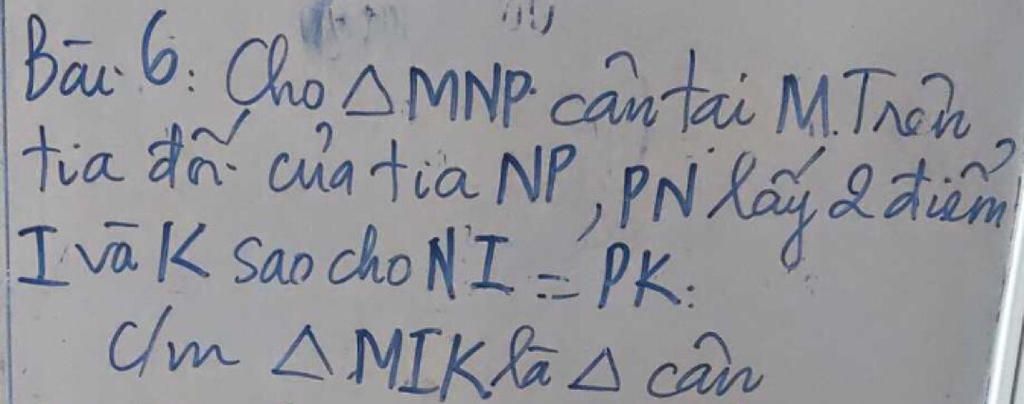 Bài 6: Cho △MNP cân tại M. Trên
tia đối của tia NP, PN lấy 2 điểm
I và K sao cho NI = PK.
c/m △MIK là △ cân